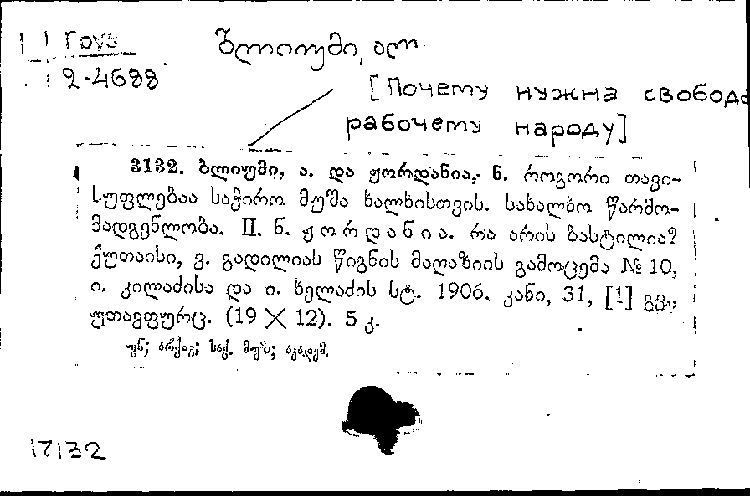 ბლიუმი, ალ.
2-4688
[Почему нужна свобода
рабочему народу]
3132. ბლიუმი, ა. და ჟორდანია, ნ. როგორი თავი-
სუფლებაა საჭირო მუშა ხალხისთვის. სახალხო წარმო-
მადგენლობა. II. ნ. ჟორდანია. რა არის ბასტილია?
ქუთაისი, ვ. გადილიას წიგნის მაღაზიის გამოცემა № 10,
ი. კილაძისა და ი. ხელაძის სტ. 1906. კანი, 31, [1] გვ.,
უთავფურც. (19 X 12). 5 კ.
17132